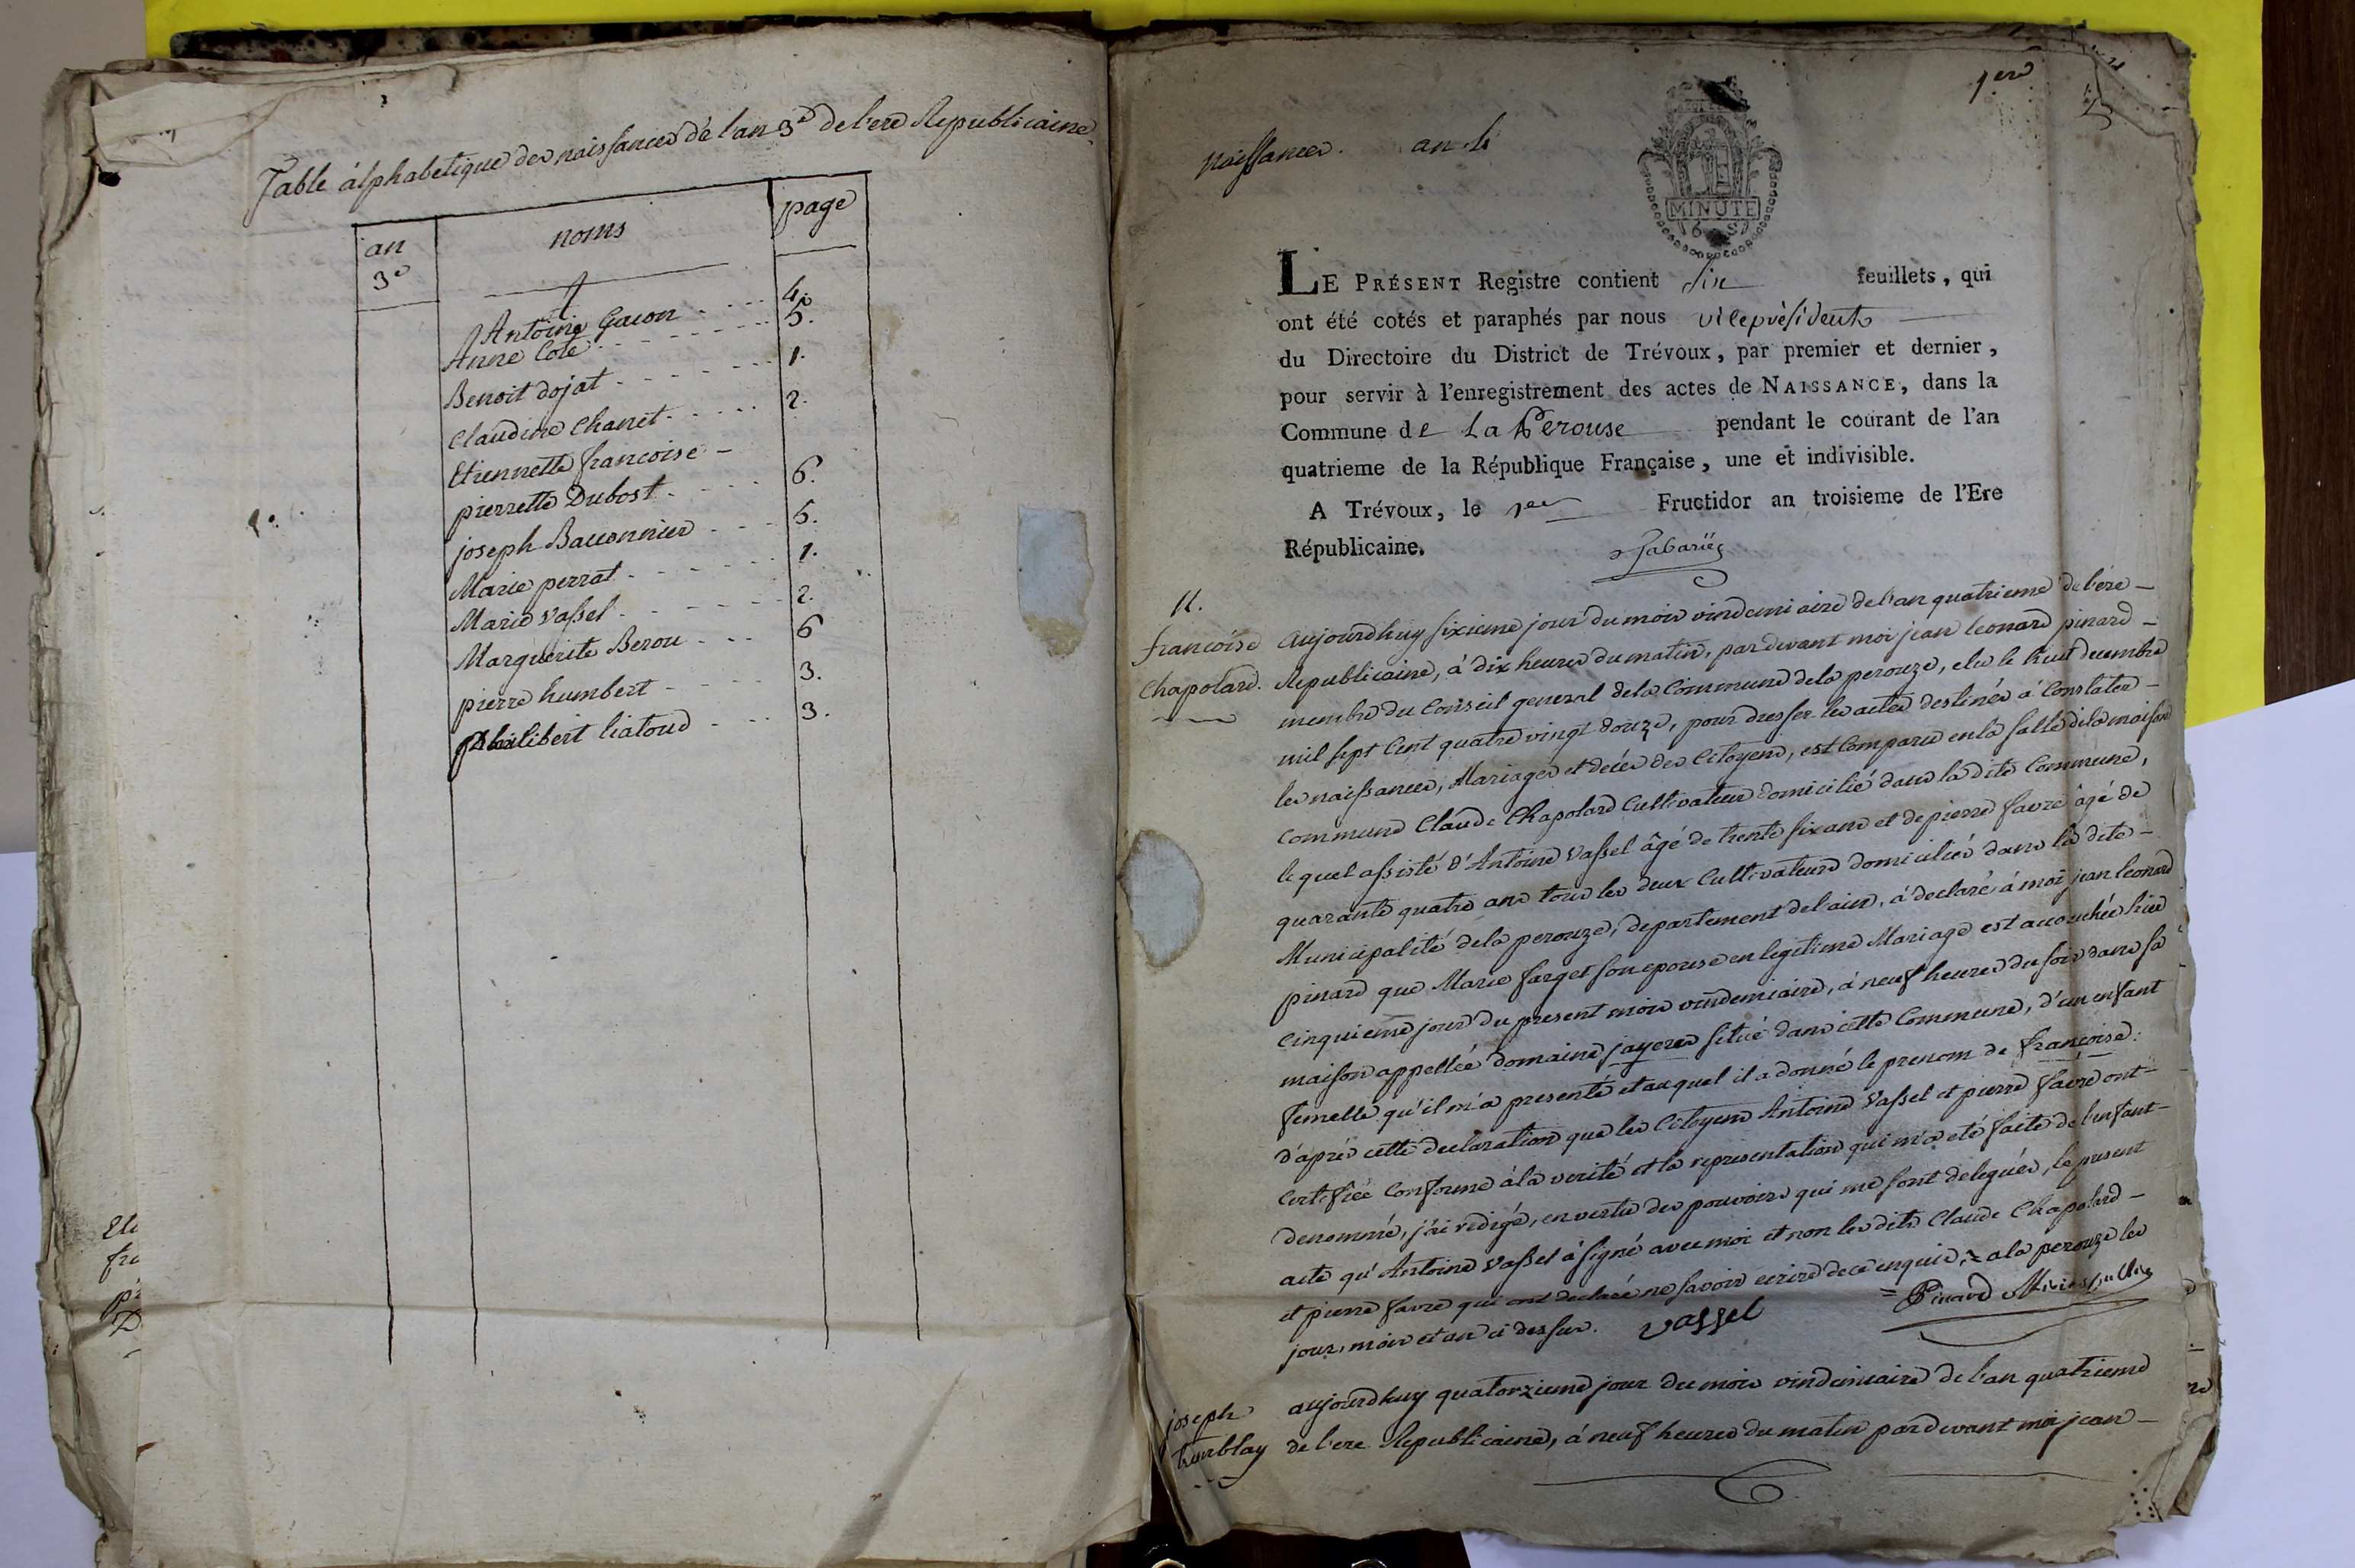 Table alphabetique des naissances de l'an 3e de l'ere Republicaine
an 3e
noms
page
Antoine Gacon 4.
Anne Cote 5.
Benoit dojat 1.
Claudine Chanet 2.
Etiennette francoise
pierrette Dubost 6.
joseph Bauonnier 5.
Marie perrat 1.
Marie Vassel 2.
Marguerite Berou 6
pierre humbert 3.
philibert liatoud 3.
1ere
Naissances. an 4
MINUTE
LE PRÉSENT Registre contient six feuillets, qui
ont été cotés et paraphés par nous viceprésident
du Directoire du District de Trévoux, par premier et dernier,
pour servir à l'enregistrement des actes de NAISSANCE, dans la
Commune de La Perouse pendant le courant de l'an
quatrieme de la République Française, une et indivisible.
A Trévoux, le 1er Fructidor an troisieme de l'Ere
Républicaine.
francoise
Chapolard.
aujourdhuy sixieme jour du mois vindemiaire de l'an quatrieme de l'ere
Republicaine, à dix heures du matin, pardevant moi jean leonard pinard
membre du Conseil general dela Commune dela perouze, elu le huit decembre
mil sept Cent quatre vingt douze, pour dresser les actes destinés à Constater
les naissances, Mariages et décés des Citoyens, est Comparu en la salle dela maison
commune Claude Chapolard Cultivateur domicilié dans la dite Commune,
le quel assisté d'Antoine Vassel âgé de trente six ans et de pierre favre âgé de
quarante quatre ans tous les deux Cultivateurs domiciliés dans la dite
Municipalité dela perouze, departement del'ain, à declaré à moi jean leonard
pinard que Marie farget son epouse en legitime Mariage est accouchée hier
Cinquieme jour du present mois vindemiaire, à neuf heures du soir dans sa
maison appellée domaine jayeres situé dans cette Commune, d'un enfant
femelle qu'il m'a presenté et auquel il a donné le prenom de francoise.
d'aprés cette declaration que les Citoyens Antoine Vassel et pierre favre ont
Certifiée Conforme à la verité et la representation qui m'a eté faite de l'enfant
denommé, j'ai redigé, en vertu des pouvoirs qui me sont delegués, le present
acte qu'Antoine Vassel à signé avec moi et non les dits Claude Chapolard
et pierre favre qui ont declaré ne savoir ecrire de ce enquis, a la perouze les
jour, mois et an ci dessus. vassel Pinard
joseph
turblay
aujourdhuy quatorzieme jour du mois vindemiaire de l'an quatrieme
de l'ere Republicaine, à neuf heures du matin pardevant moi jean